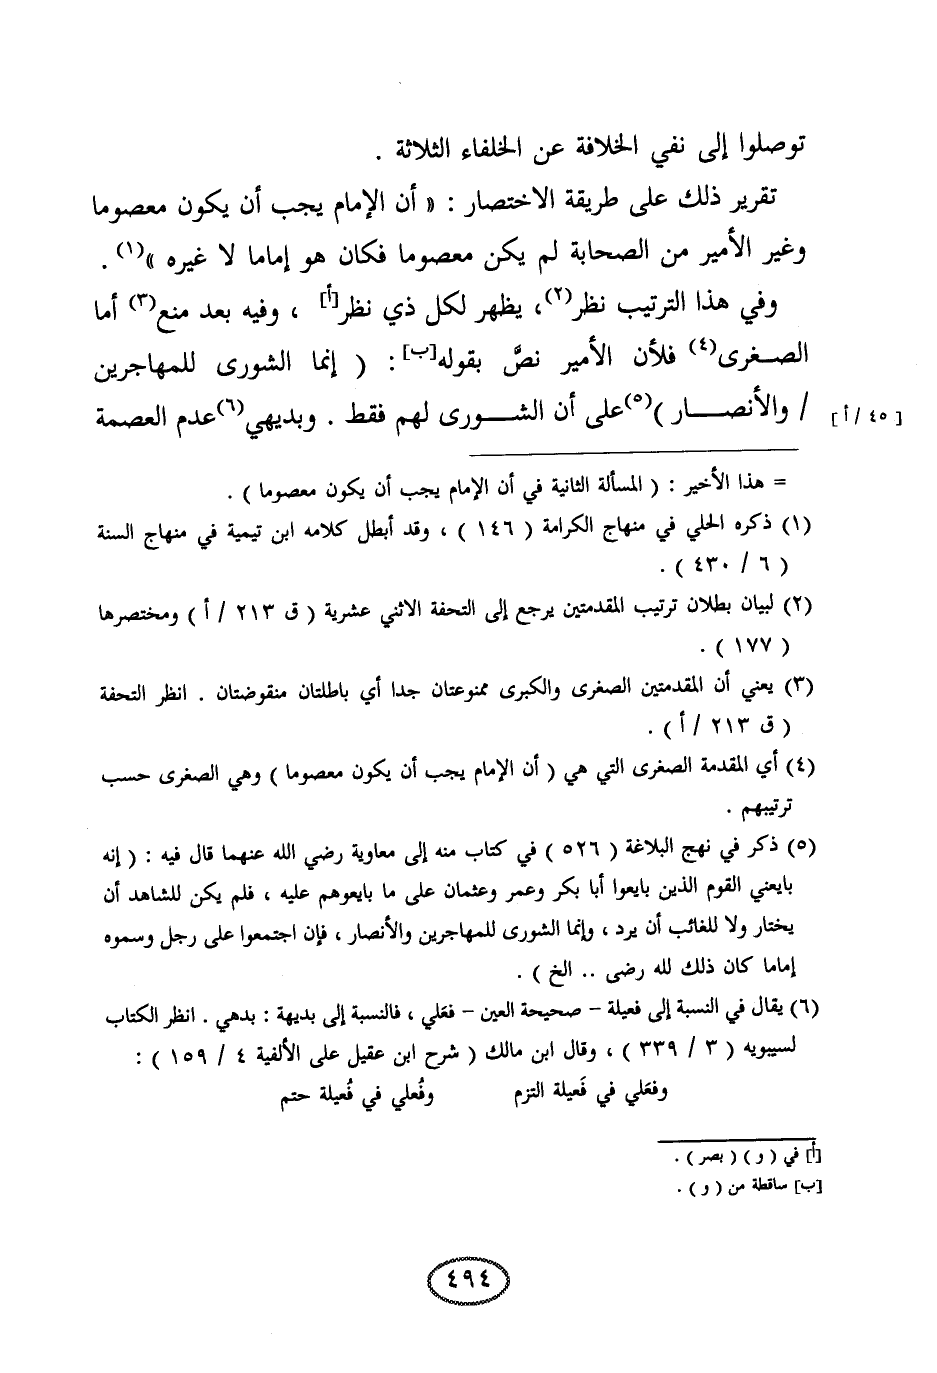 توصلوا إلى نفي الخلافة عن الخلفاء الثلاثة .
تقرير ذلك على طريقة الاختصار : « أن الإمام يجب أن يكون معصوما
وغير الأمير من الصحابة لم يكن معصوما فكان هو إماما لا غيره »(١) .
وفي هذا الترتيب نظر(٢)، يظهر لكل ذي نظر[أ] ، وفيه بعد منع(٣) أما
الصغرى(٤) فلأن الأمير نصَّ بقوله[ب] : ( إنما الشورى للمهاجرين
/ والأنصار )(٥)على أن الشورى لهم فقط . وبديهي(٦)عدم العصمة [ ٤٥ / أ ]
= هذا الأخير : ( المسألة الثانية في أن الإمام يجب أن يكون معصوما ) .
(١) ذكره الحلي في منهاج الكرامة ( ١٤٦ ) ، وقد أبطل كلامه ابن تيمية في منهاج السنة
( ٦ / ٤٣٠ ) .
(٢) لبيان بطلان ترتيب المقدمتين يرجع إلى التحفة الاثني عشرية ( ق ٢١٣ / أ ) ومختصرها
( ١٧٧ ) .
(٣) يعني أن المقدمتين الصغرى والكبرى ممنوعتان جدا أي باطلتان منقوضتان . انظر التحفة
( ق ٢١٣ / أ ) .
(٤) أي المقدمة الصغرى التي هي ( أن الإمام يجب أن يكون معصوما ) وهي الصغرى حسب
ترتيبهم .
(٥) ذكر في نهج البلاغة ( ٥٢٦ ) في كتاب منه إلى معاوية رضي الله عنهما قال فيه : ( إنه
بايعني القوم الذين بايعوا أبا بكر وعمر وعثمان على ما بايعوهم عليه ، فلم يكن للشاهد أن
يختار ولا للغائب أن يرد ، وإنما الشورى للمهاجرين والأنصار ، فإن اجتمعوا على رجل وسموه
إماما كان ذلك لله رضى .. الخ ) .
(٦) يقال في النسبة إلى فعيلة – صحيحة العين – فعَلي ، فالنسبة إلى بديهة : بدهي . انظر الكتاب
لسيبويه ( ٣ / ٣٣٩ ) ، وقال ابن مالك ( شرح ابن عقيل على الألفية ٤ / ١٥٩ ) :
وفعَلي في فَعيلة التزم وفُعلي في فُعيلة حتم
[أ] في ( و ) ( بصر ) .
[ب] ساقطة من ( و ) .
٤٩٤